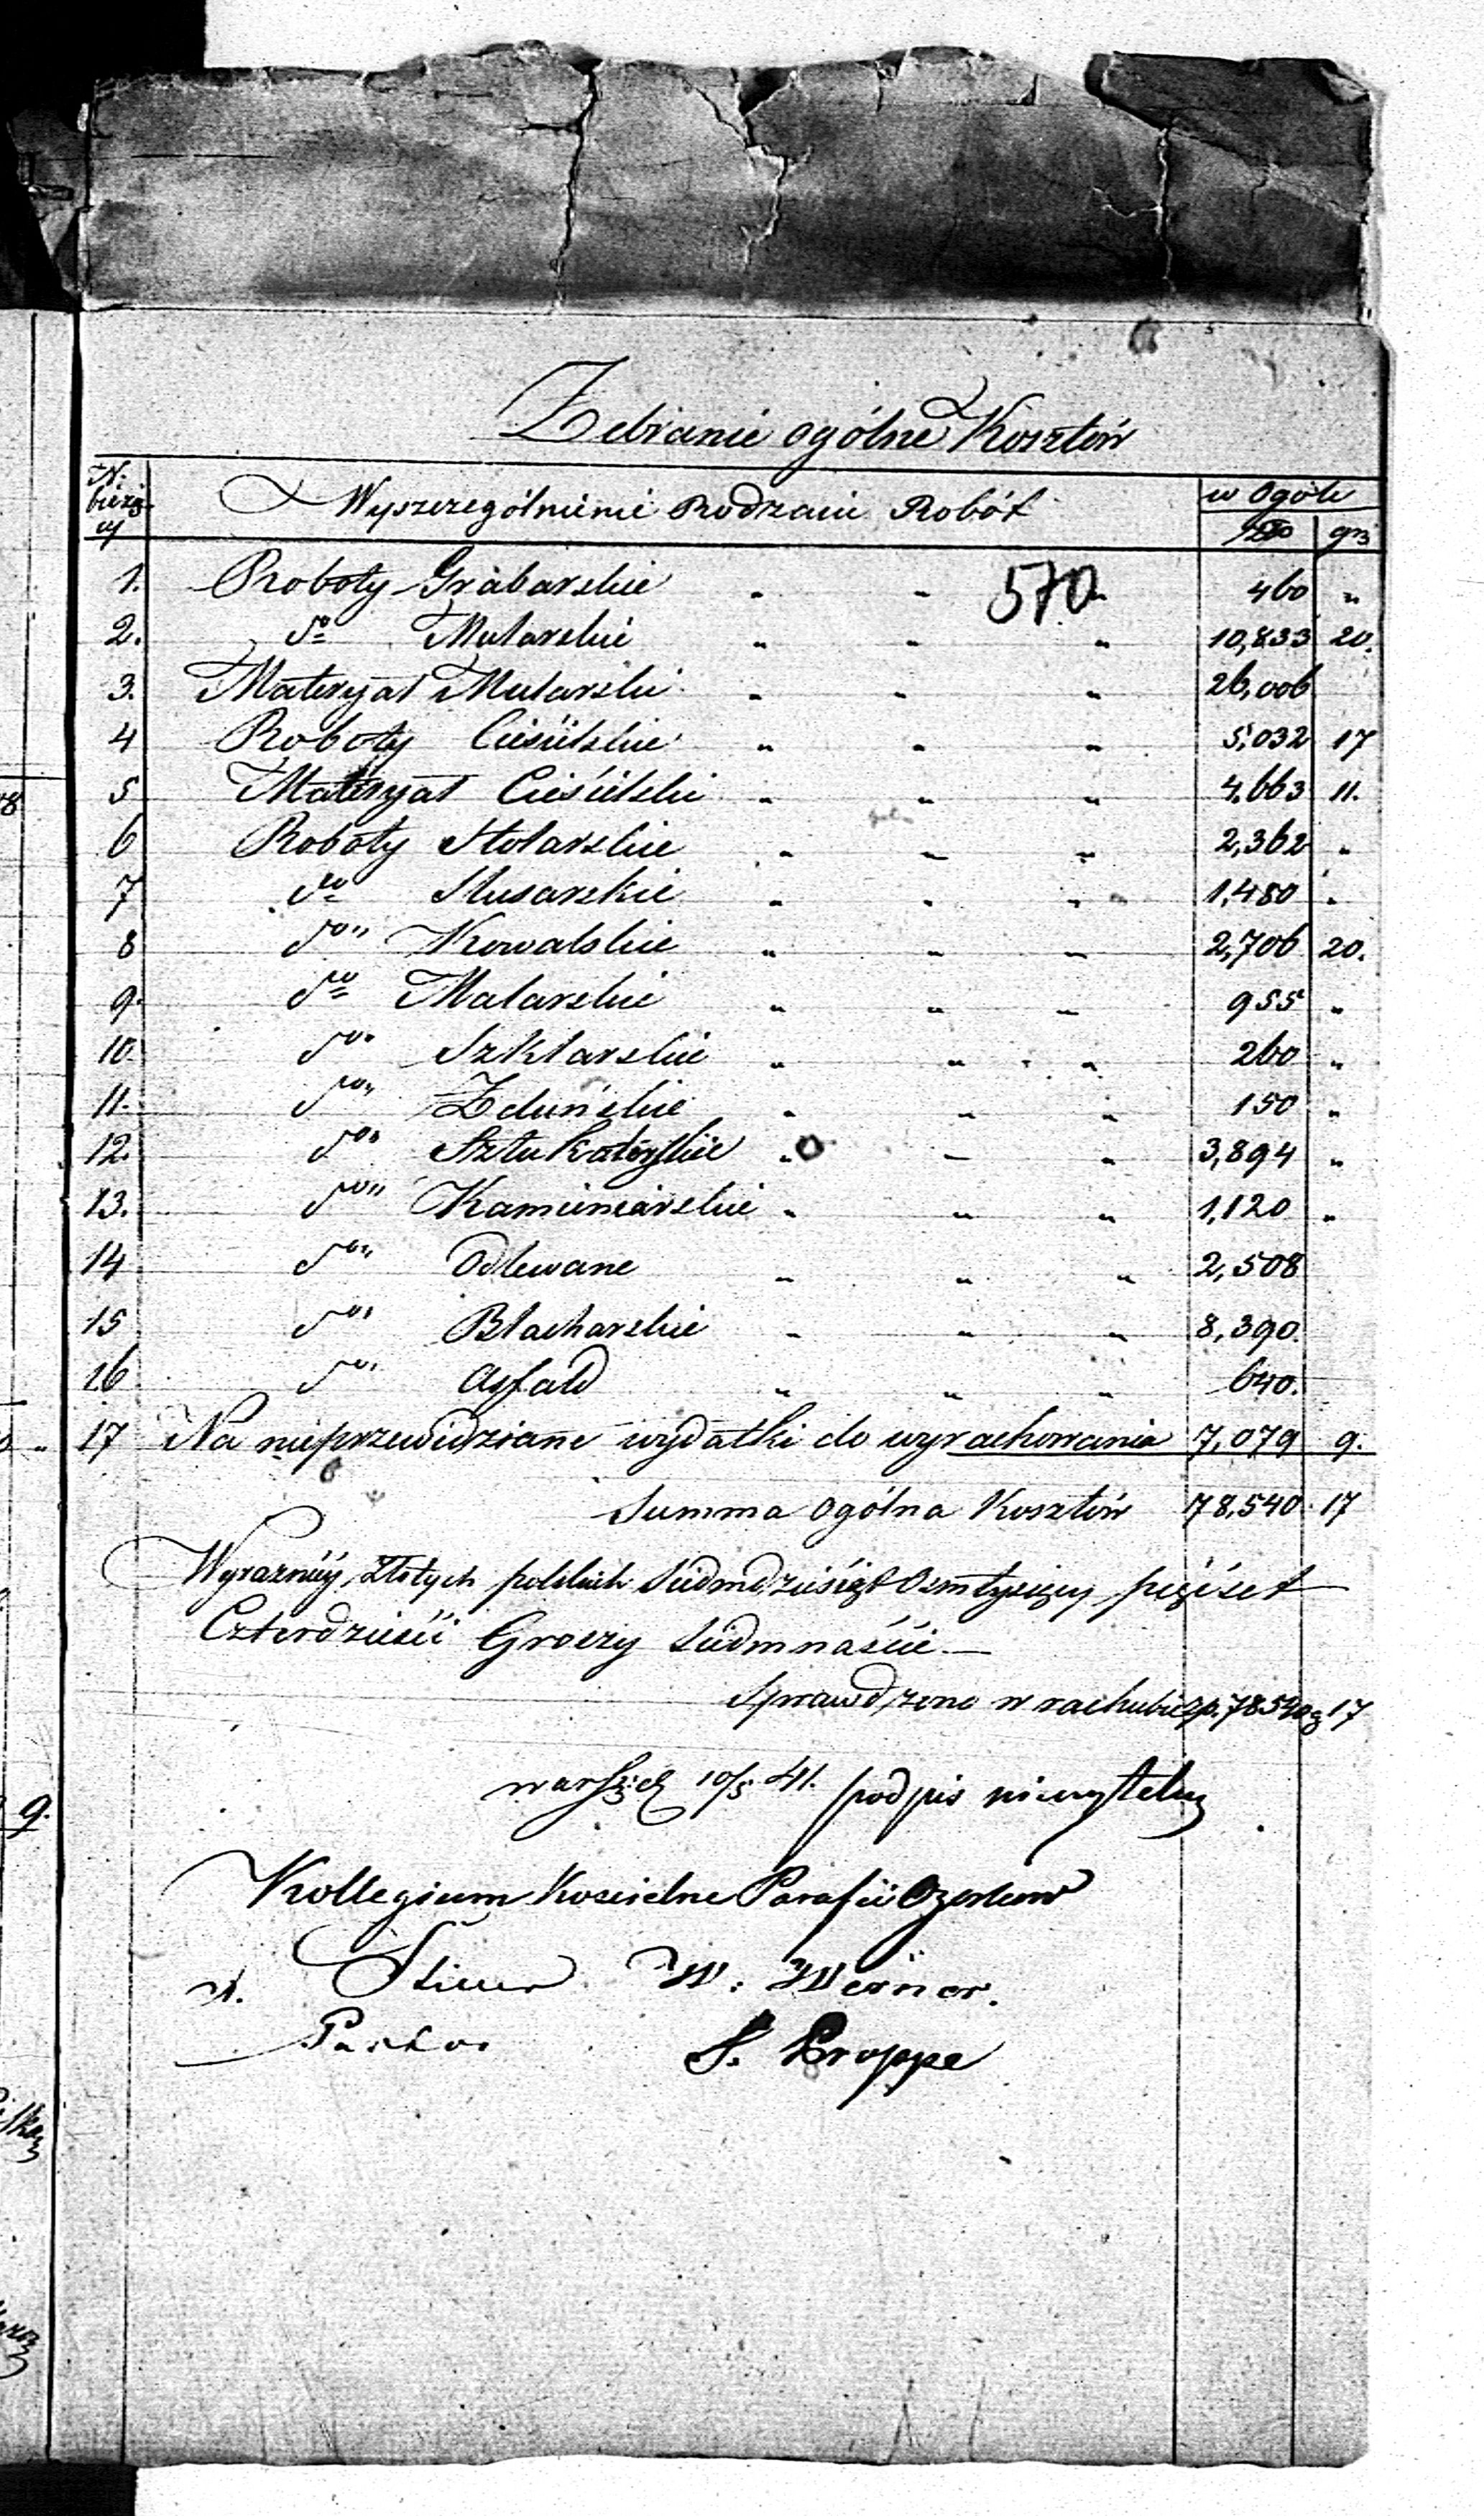 Zebranie ogólne Kosztów
N: bieżący Wyszczególnienie Rodzaju Robót w Ogóle
Złp grs
1. Roboty Grabarskie " " " 460 "
570
2. do Mularskie " " " 10,833 20.
3. Materyał Mularski " " " 26,006
4 Roboty Ciesielskie " " " 5,032 17
5 Materyał Ciesielski " " " 4,663 11.
6 Roboty Stolarskie " " " 2,362 "
7 do Slusarskie " " " 1,480 "
8 do " Kowalskie " " " 2,706 20.
9. do Malarskie " " " 955 "
10. do " Szklarskie " " " 260 "
11. do " Zduńskie " " " 150 "
12. do " Sztukatorskie " " " 3,894 "
13. do " Kamieniarskie " " " 1,120 "
14 do " Odlewane " " " 2,508
15 do " Blacharskie " " " 8,390.
16 do " Asfald " " " 640.
17 Na nieprzewidziane wydatki do wyrachowania 7,079 9.
Summa Ogólna Kosztów 78,540 17
Wyrazniey, złotych polskich Siedmdziesiąt Osmtysięcy pięćset
Czterdzieści Groszy Siedmnaście
Sprawdzono w rachubie zp. 78540 g 17
10/5 41. podpis nieczytelny
Kollegium Koscielne Parafii Ozorkow
W: Werner.
Pastor
S. Proppe
9.